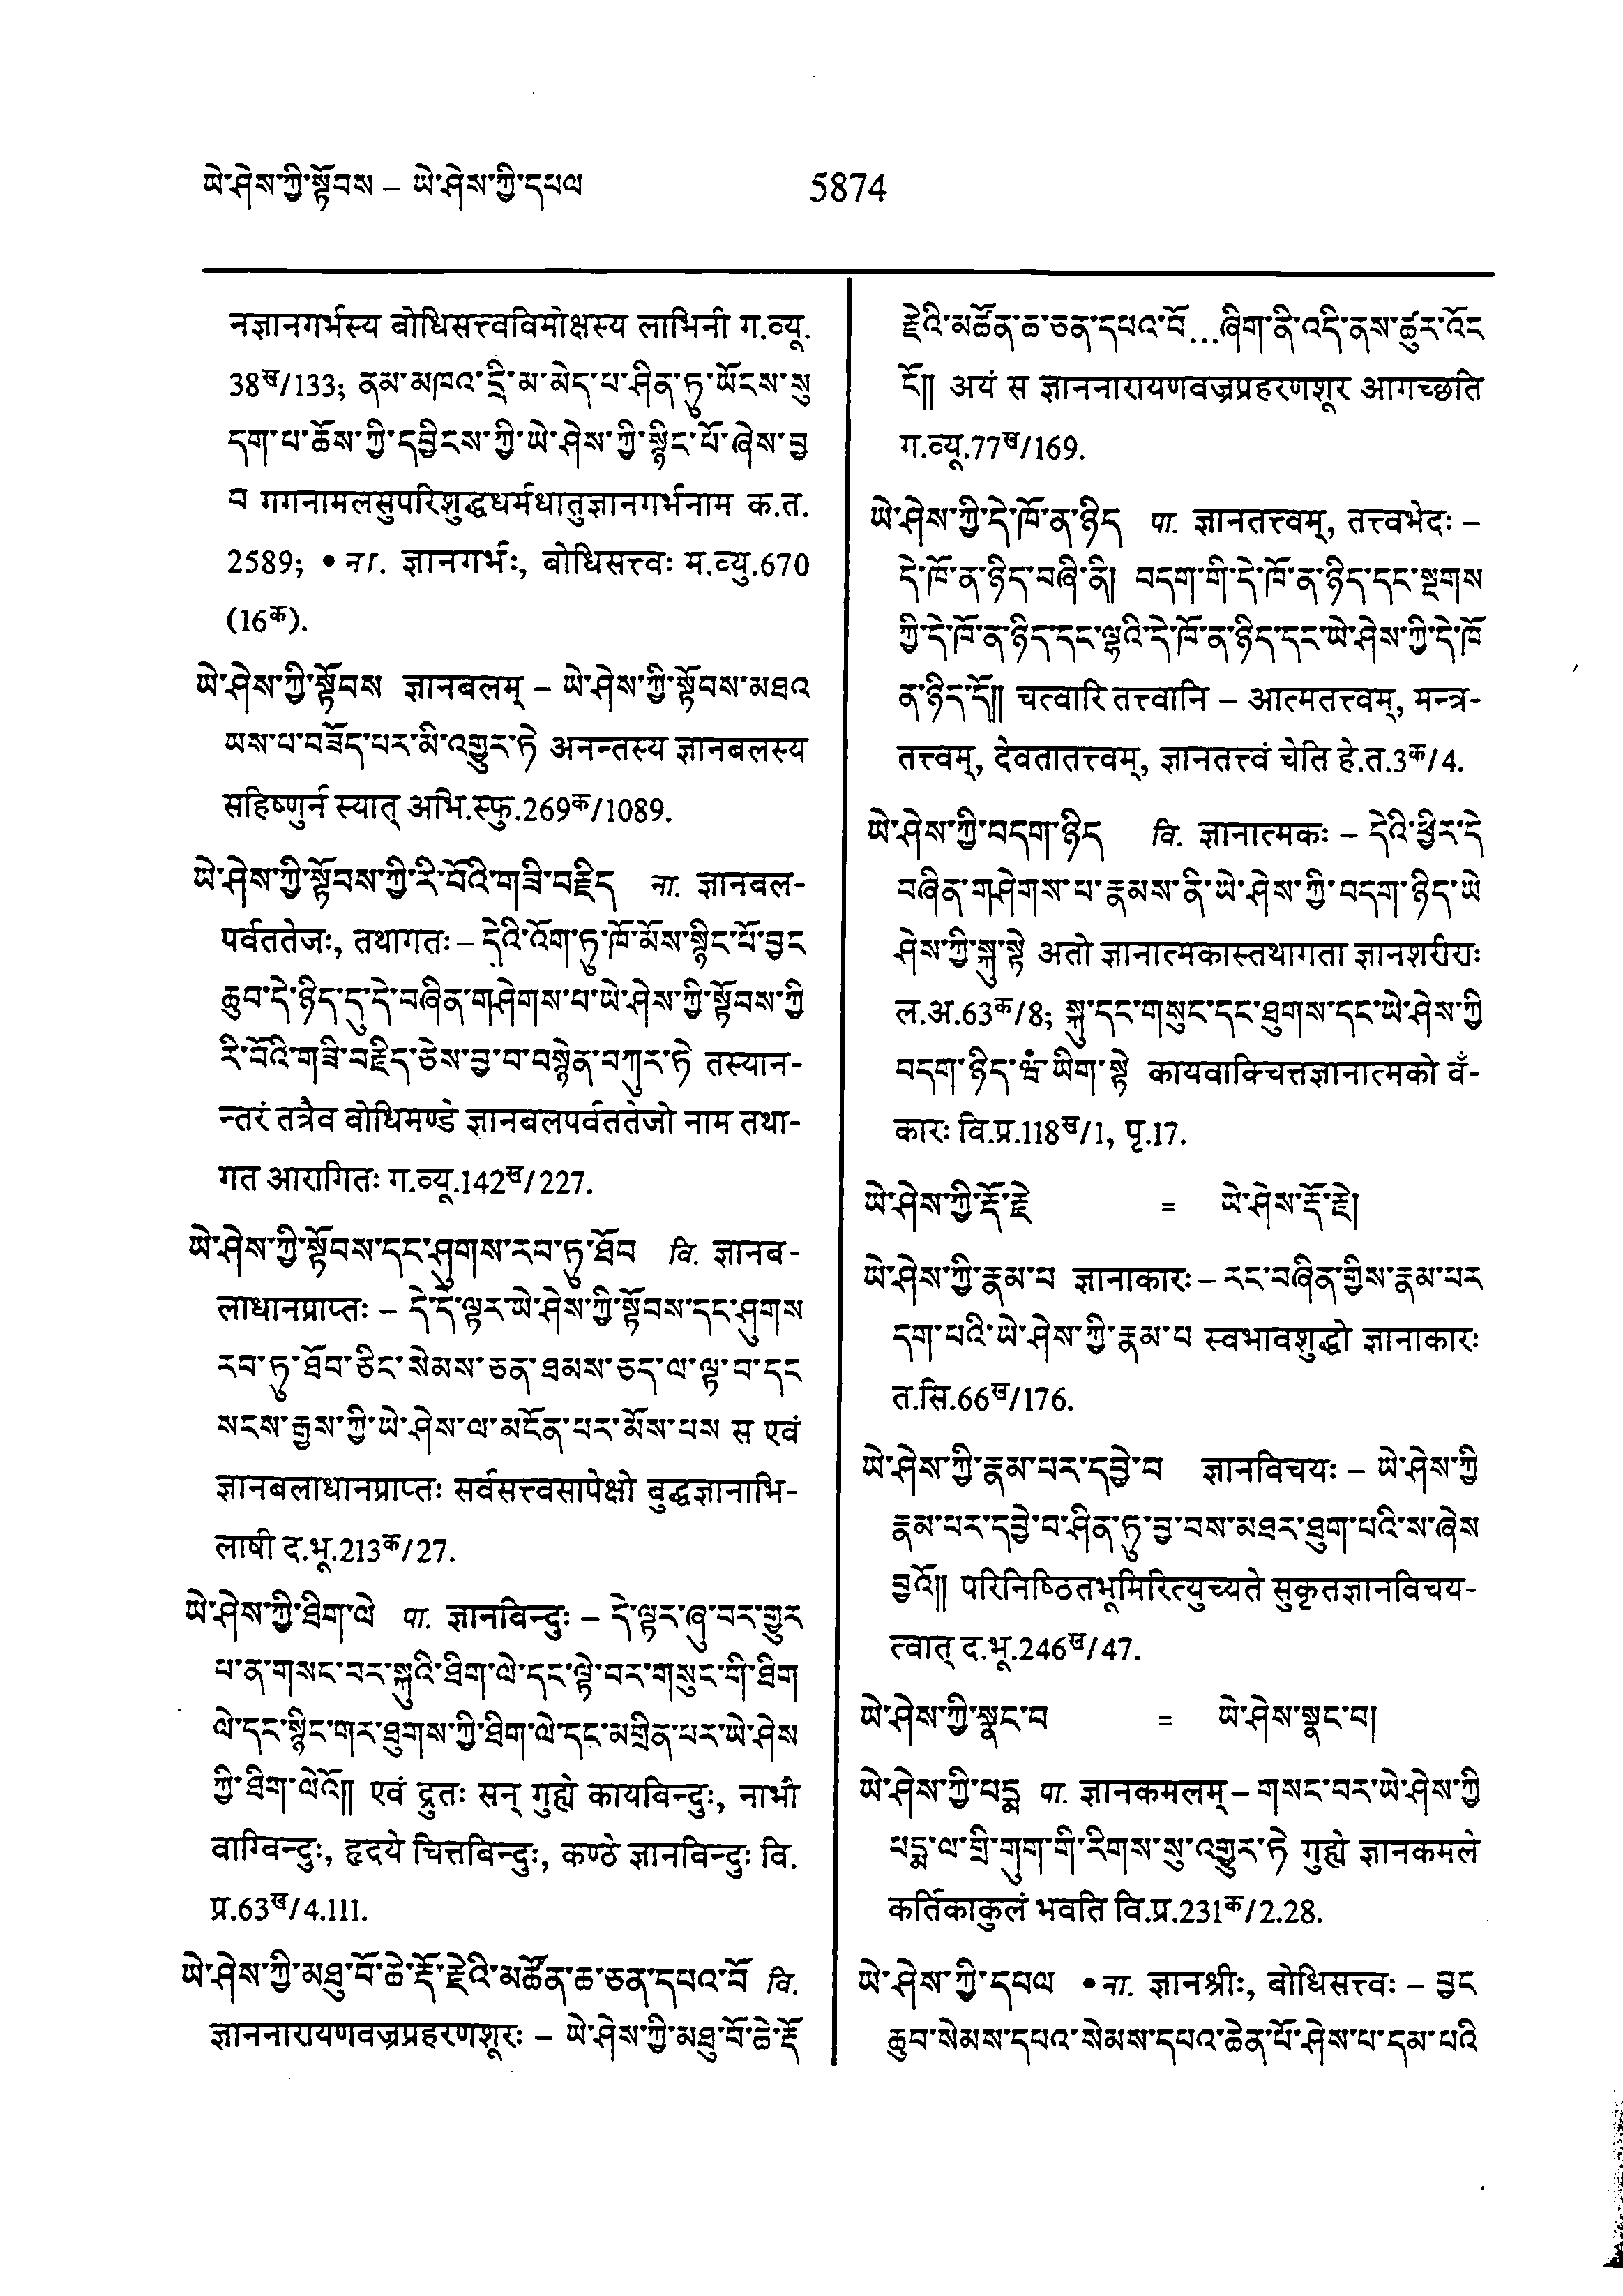 ཡེ་ཤེས་ཀྱི་སྟོབས – ཡེ་ཤེས་ཀྱི་དཔལ
5874
नज्ञानगर्भस्य बोधिसत्त्वविमोक्षस्य लाभिनी ग.व्यू.
38ख/133; ནམ་མཁའ་དྲི་མ་མེད་པ་ཤིན་ཏུ་ཡོངས་སུ
དག་པ་ཆོས་ཀྱི་དབྱིངས་ཀྱི་ཡེ་ཤེས་ཀྱི་སྙིང་པོ་ཞེས་བྱ
བ गगनामलसुपरिशुद्धधर्मधातुज्ञानगर्भनाम क.त.
2589; • ना. ज्ञानगर्भः, बोधिसत्त्वः म.व्यु.670
(16क).
ཡེ་ཤེས་ཀྱི་སྟོབས ज्ञानबलम् – ཡེ་ཤེས་ཀྱི་སྟོབས་མཐའ
ཡས་པ་བཟོད་པར་མི་འགྱུར་ཏེ अनन्तस्य ज्ञानबलस्य
सहिष्णुर्न स्यात् अभि.स्फु.269क/1089.
ཡེ་ཤེས་ཀྱི་སྟོབས་ཀྱི་རི་བོའི་གཟི་བརྗིད ना. ज्ञानबल-
पर्वततेजः, तथागतः – དེའི་འོག་ཏུ་ཁོ་མོས་སྙིང་པོ་བྱང
ཆུབ་དེ་ཉིད་དུ་དེ་བཞིན་གཤེགས་པ་ཡེ་ཤེས་ཀྱི་སྟོབས་ཀྱི
རི་བོའི་གཟི་བརྗིད་ཅེས་བྱ་བ་བསྙེན་བཀུར་ཏེ तस्यान-
न्तरं तत्रैव बोधिमण्डे ज्ञानबलपर्वततेजो नाम तथा-
गत आरागितः ग.व्यू.142ख/227.
ཡེ་ཤེས་ཀྱི་སྟོབས་དང་ཤུགས་རབ་ཏུ་ཐོབ वि. ज्ञानब-
लाधानप्राप्तः – དེ་དེ་ལྟར་ཡེ་ཤེས་ཀྱི་སྟོབས་དང་ཤུགས
རབ་ཏུ་ཐོབ་ཅིང་སེམས་ཅན་ཐམས་ཅད་ལ་ལྟ་བ་དང
སངས་རྒྱས་ཀྱི་ཡེ་ཤེས་ལ་མངོན་པར་མོས་པས स एवं
ज्ञानबलाधानप्राप्तः सर्वसत्त्वसापेक्षो बुद्धज्ञानाभि-
लाषी द.भू.213क/27.
ཡེ་ཤེས་ཀྱི་ཐིག་ལེ पा. ज्ञानबिन्दुः – དེ་ལྟར་ཞུ་བར་གྱུར
པ་ན་གསང་བར་སྐུའི་ཐིག་ལེ་དང་ལྟེ་བར་གསུང་གི་ཐིག
ལེ་དང་སྙིང་གར་ཐུགས་ཀྱི་ཐིག་ལེ་དང་མགྲིན་པར་ཡེ་ཤེས
ཀྱི་ཐིག་ལེའོ།། एवं द्रुतः सन् गुह्ये कायबिन्दुः, नाभौ
वाग्बिन्दुः, हृदये चित्तबिन्दुः, कण्ठे ज्ञानबिन्दुः वि.
प्र.63ख/4.111.
ཡེ་ཤེས་ཀྱི་མཐུ་བོ་ཆེ་རྡོ་རྗེའི་མཚོན་ཆ་ཅན་དཔའ་བོ वि.
ज्ञाननारायणवज्रप्रहरणशूरः – ཡེ་ཤེས་ཀྱི་མཐུ་བོ་ཆེ་རྡོ
རྗེའི་མཚོན་ཆ་ཅན་དཔའ་བོ...ཞིག་ནི་འདི་ནས་ཚུར་འོང
ངོ།། अयं स ज्ञाननारायणवज्रप्रहरणशूर आगच्छति
ग.व्यू.77ख/169.
ཡེ་ཤེས་ཀྱི་དེ་ཁོ་ན་ཉིད पा. ज्ञानतत्त्वम्, तत्त्वभेदः –
དེ་ཁོ་ན་ཉིད་བཞི་ནི། བདག་གི་དེ་ཁོ་ན་ཉིད་དང་སྔགས
ཀྱི་དེ་ཁོ་ན་ཉིད་དང་ལྷའི་དེ་ཁོ་ན་ཉིད་དང་ཡེ་ཤེས་ཀྱི་དེ་ཁོ
ན་ཉིད་དོ།། चत्वारि तत्त्वानि – आत्मतत्त्वम्, मन्त्र-
तत्त्वम्, देवतातत्त्वम्, ज्ञानतत्त्वं चेति हे.त.3क/4.
ཡེ་ཤེས་ཀྱི་བདག་ཉིད वि. ज्ञानात्मकः – དེའི་ཕྱིར་དེ
བཞིན་གཤེགས་པ་རྣམས་ནི་ཡེ་ཤེས་ཀྱི་བདག་ཉིད་ཡེ
ཤེས་ཀྱི་སྐུ་སྟེ अतो ज्ञानात्मकास्तथागता ज्ञानशरीराः
ल.अ.63क/8; སྐུ་དང་གསུང་དང་ཐུགས་དང་ཡེ་ཤེས་ཀྱི
བདག་ཉིད་ཝྃ་ཡིག་སྟེ कायवाक्चित्तज्ञानात्मको वँ-
कारः वि.प्र.118ख/1, पृ.17.
ཡེ་ཤེས་ཀྱི་རྡོ་རྗེ = ཡེ་ཤེས་རྡོ་རྗེ།
ཡེ་ཤེས་ཀྱི་རྣམ་པ ज्ञानाकारः – རང་བཞིན་གྱིས་རྣམ་པར
དག་པའི་ཡེ་ཤེས་ཀྱི་རྣམ་པ स्वभावशुद्धो ज्ञानाकारः
त.सि.66ख/176.
ཡེ་ཤེས་ཀྱི་རྣམ་པར་དབྱེ་བ ज्ञानविचयः – ཡེ་ཤེས་ཀྱི
རྣམ་པར་དབྱེ་བ་ཤིན་ཏུ་བྱ་བས་མཐར་ཐུག་པའི་ས་ཞེས
བྱའོ།། परिनिष्ठितभूमिरित्युच्यते सुकृतज्ञानविचय-
त्वात् द.भू.246ख/47.
ཡེ་ཤེས་ཀྱི་སྣང་བ = ཡེ་ཤེས་སྣང་བ།
ཡེ་ཤེས་ཀྱི་པདྨ पा. ज्ञानकमलम् – གསང་བར་ཡེ་ཤེས་ཀྱི
པདྨ་ལ་གྲི་གུག་གི་རིགས་སུ་འགྱུར་ཏེ गुह्ये ज्ञानकमले
कर्तिकाकुलं भवति वि.प्र.231क/2.28.
ཡེ་ཤེས་ཀྱི་དཔལ • ना. ज्ञानश्रीः, बोधिसत्त्वः – བྱང
ཆུབ་སེམས་དཔའ་སེམས་དཔའ་ཆེན་པོ་ཤེས་པ་དམ་པའི